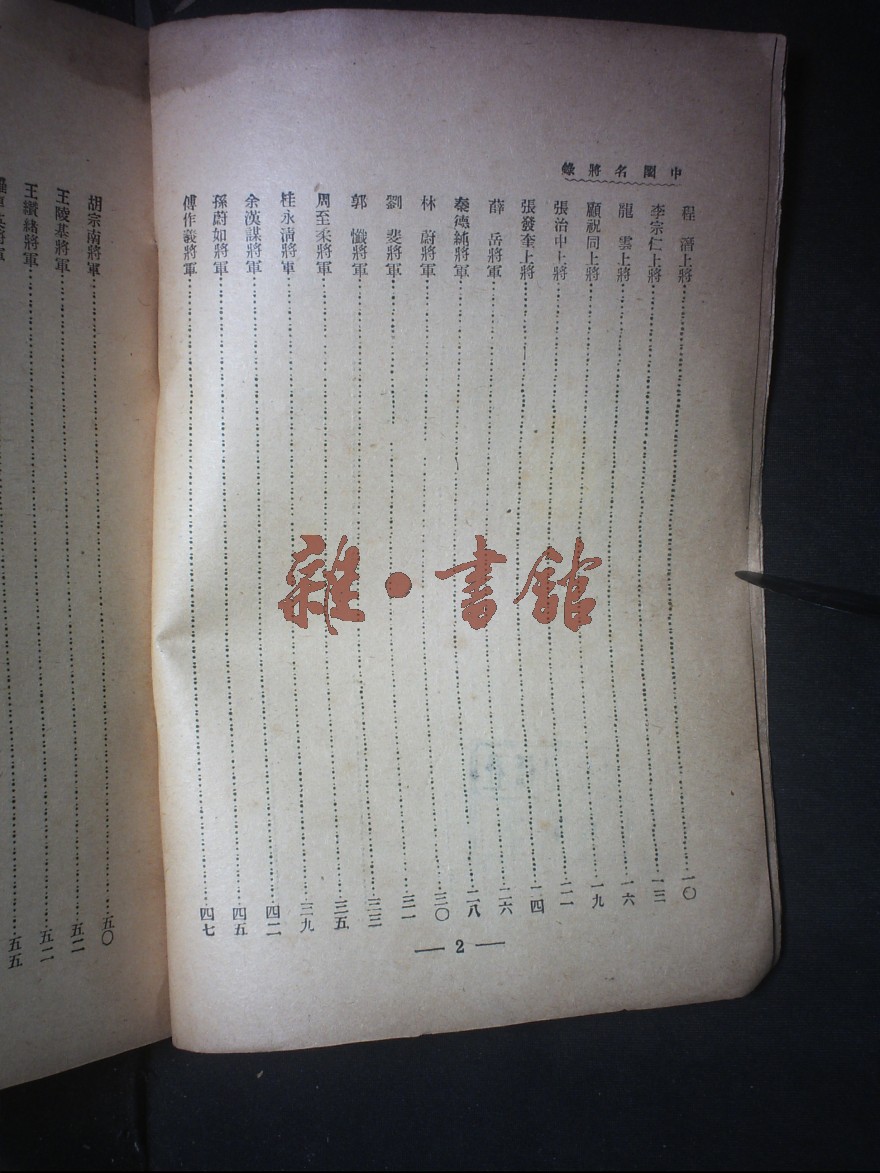 中國名將錄
程　潛上將……一〇
李宗仁上將……一三
龍　雲上將……一六
顧祝同上將……一九
張治中上將……二一
張發奎上將……二四
薛　岳將軍……二六
秦德純將軍……二八
林　蔚將軍……三〇
劉　斐將軍……三一
郭　懺將軍……三三
周至柔將軍……三五
桂永清將軍……三九
余漢謀將軍……四二
孫蔚如將軍……四五
傅作義將軍……四七
2
胡宗南將軍……五〇
王陵基將軍……五二
王纘緒將軍……五二
將軍……五五
雜·書館